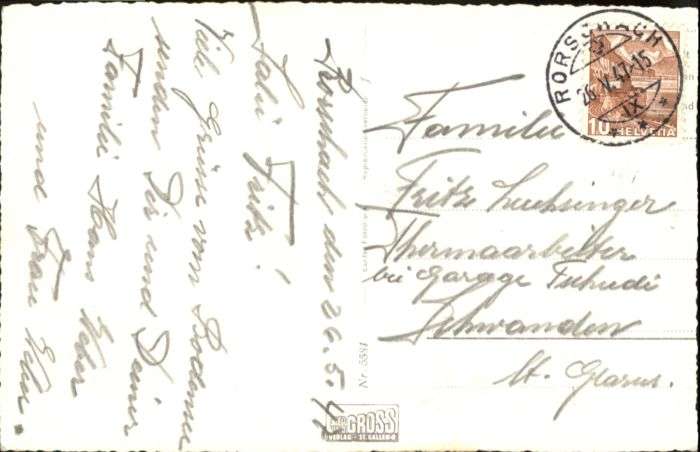 Rorschach den 26.5.47
Salü Fritz!
Viele Grüsse vom Bodensee
senden Dir und Deiner
Familie Hans Weber
und Frau
Familie
Fritz Luchsinger
Thermaarbeiter
bei Garage Tschudi
Schwanden
Kt. Glarus.
RORSCHACH
26.V.47-15
IX
10 HELVETIA
Nr. 5581
GROSS
VERLAG - ST. GALLEN